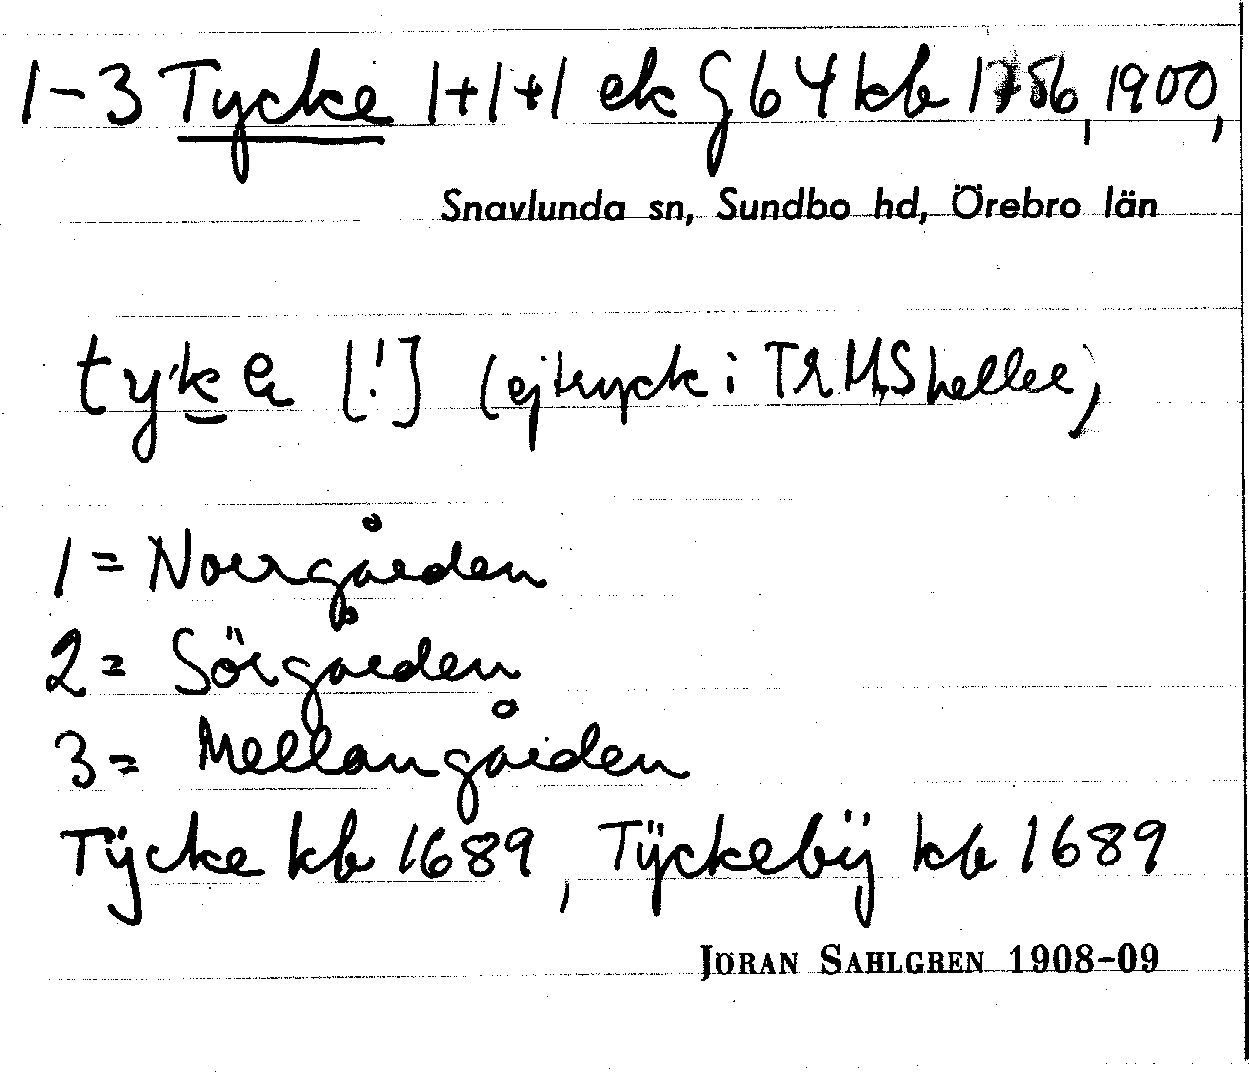 1-3 Tycke 1+1+1 ek G 64 kb 1786, 1900,
Snavlunda sn, Sundbo hd, Örebro län
tyke [!] (ej tryck i TRMS heller)
1 = Norrgården
2 = Sörgården
3 = Mellangården
Tÿcke kb 1689, Tÿckebÿ kb 1689
JÖRAN SAHLGREN 1908-09